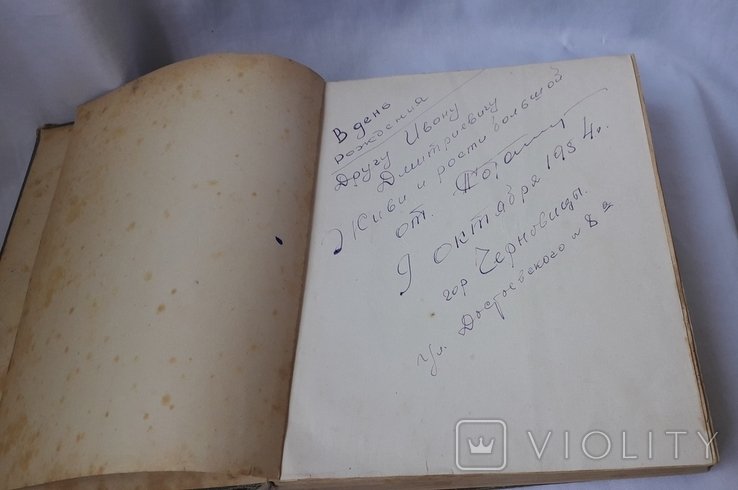 В день
рождения
Другу Ивану
Дмитриевичу
Живи и рости большой
от.
9 октября 1954 г.
гор Черновицы.
ул. Достоевского № 8 а
VIOLITY